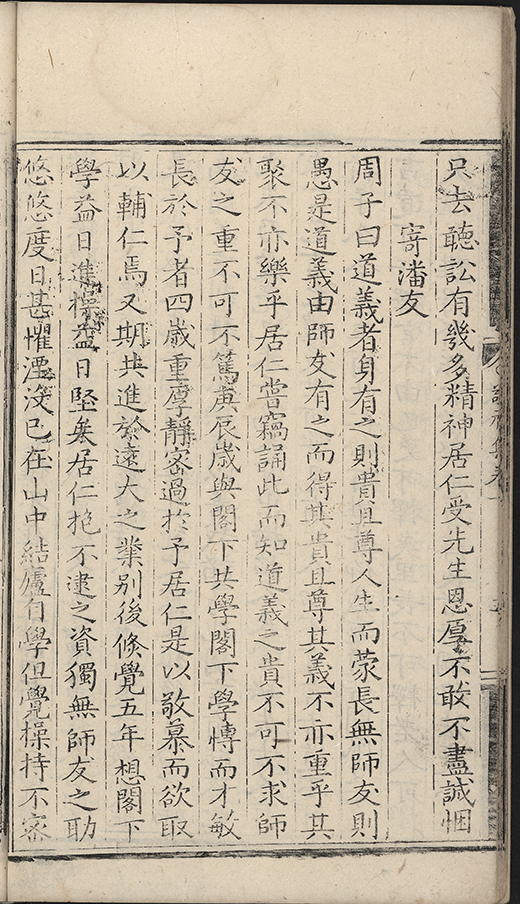 只去聽訟有幾多精神居仁受先生恩厚不敢不盡誠悃
寄潘友
周子曰道義者身有之則貴且尊人生而蒙長無師友則
愚是道義由師友有之而得其貴且尊其義不亦重乎其
聚不亦樂乎居仁嘗竊誦此而知道義之貴不可不求師
友之重不可不篤庚辰歲與閣下共學閣下學博而才敏
長於予者四歲重厚靜密過於予居仁是以敬慕而欲取
以輔仁焉又期共進於遠大之業別後倏覺五年想閣下
學益日進操益日堅矣居仁抱不逮之資獨無師友之助
悠悠度日甚懼湮沒已在山中結廬自學但覺操持不密